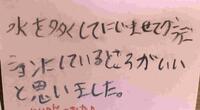 水を多くしてにじませてグラデー
ションにしているどころがいい
と思いました。